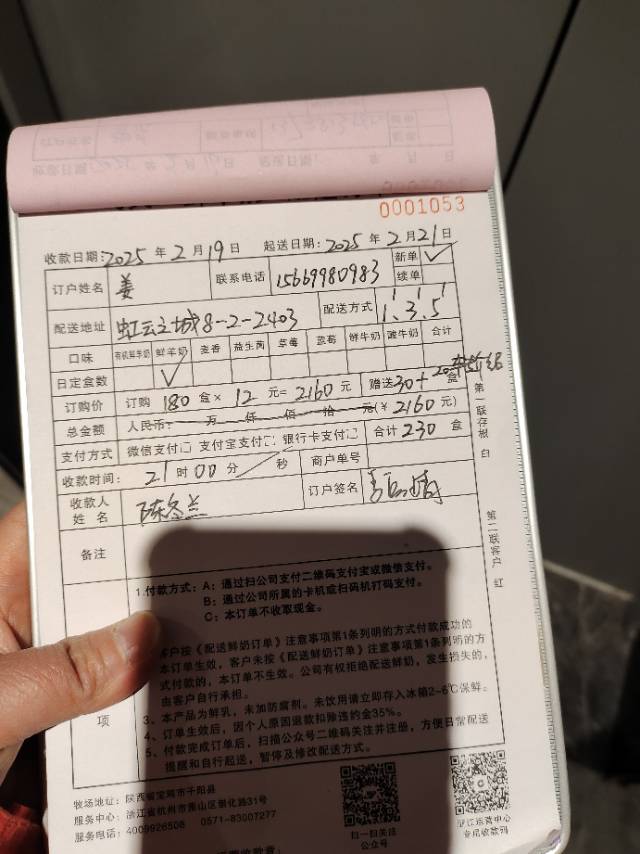 0001053
收款日期:2025年2月19日 起送日期:2025年2月21日
订户姓名 姜 联系电话 15669980983 新单 ✓ 续单
配送地址 虹云之城8-2-2403 配送方式 1.3.5
口味 有机鲜羊奶 鲜羊奶 麦香 益生菌 草莓 蓝莓 鲜牛奶 酸牛奶 合计
日定盒数 ✓
订购价 订购180盒×12元=2160元 赠送30+20 盒
总金额 人民币: 万 仟 佰 拾 元(¥2160元)
支付方式 微信支付□ 支付宝支付□ 银行卡支付□ 合计230盒
收款时间: 21时00分 秒 商户单号
收款人姓名 陈冬兰 订户签名
备注
第一联存根 白
第二联客户 红
1.付款方式: A: 通过扫公司支付二维码支付宝或微信支付。
B: 通过公司所属的卡机或扫码机打码支付。
C: 本订单不收取现金。
客户按《配送鲜奶订单》注意事项第1条列明的方式付款成功的
本订单生效,客户未按《配送鲜奶订单》注意事项第1条列明的方
式付款的,本订单不生效。公司有权拒绝配送鲜奶,发生损失的,
由客户自行承担。
3、本产品为鲜乳,未加防腐剂。未饮用请立即存入冰箱2-6℃保鲜。
4、订单生效后,因个人原因退款扣除违约金35%。
5、付款完成订单后,扫描公众号二维码关注并注册,方便日常配送
提醒和自行起送,暂停及修改配送方式。
项
牧场地址: 陕西省宝鸡市千阳县
服务中心: 浙江省杭州市萧山区崇化路31号
服务电话: 4009926508 0571-83007277
扫一扫关注
公众号
浙江运营中心
专用收款码